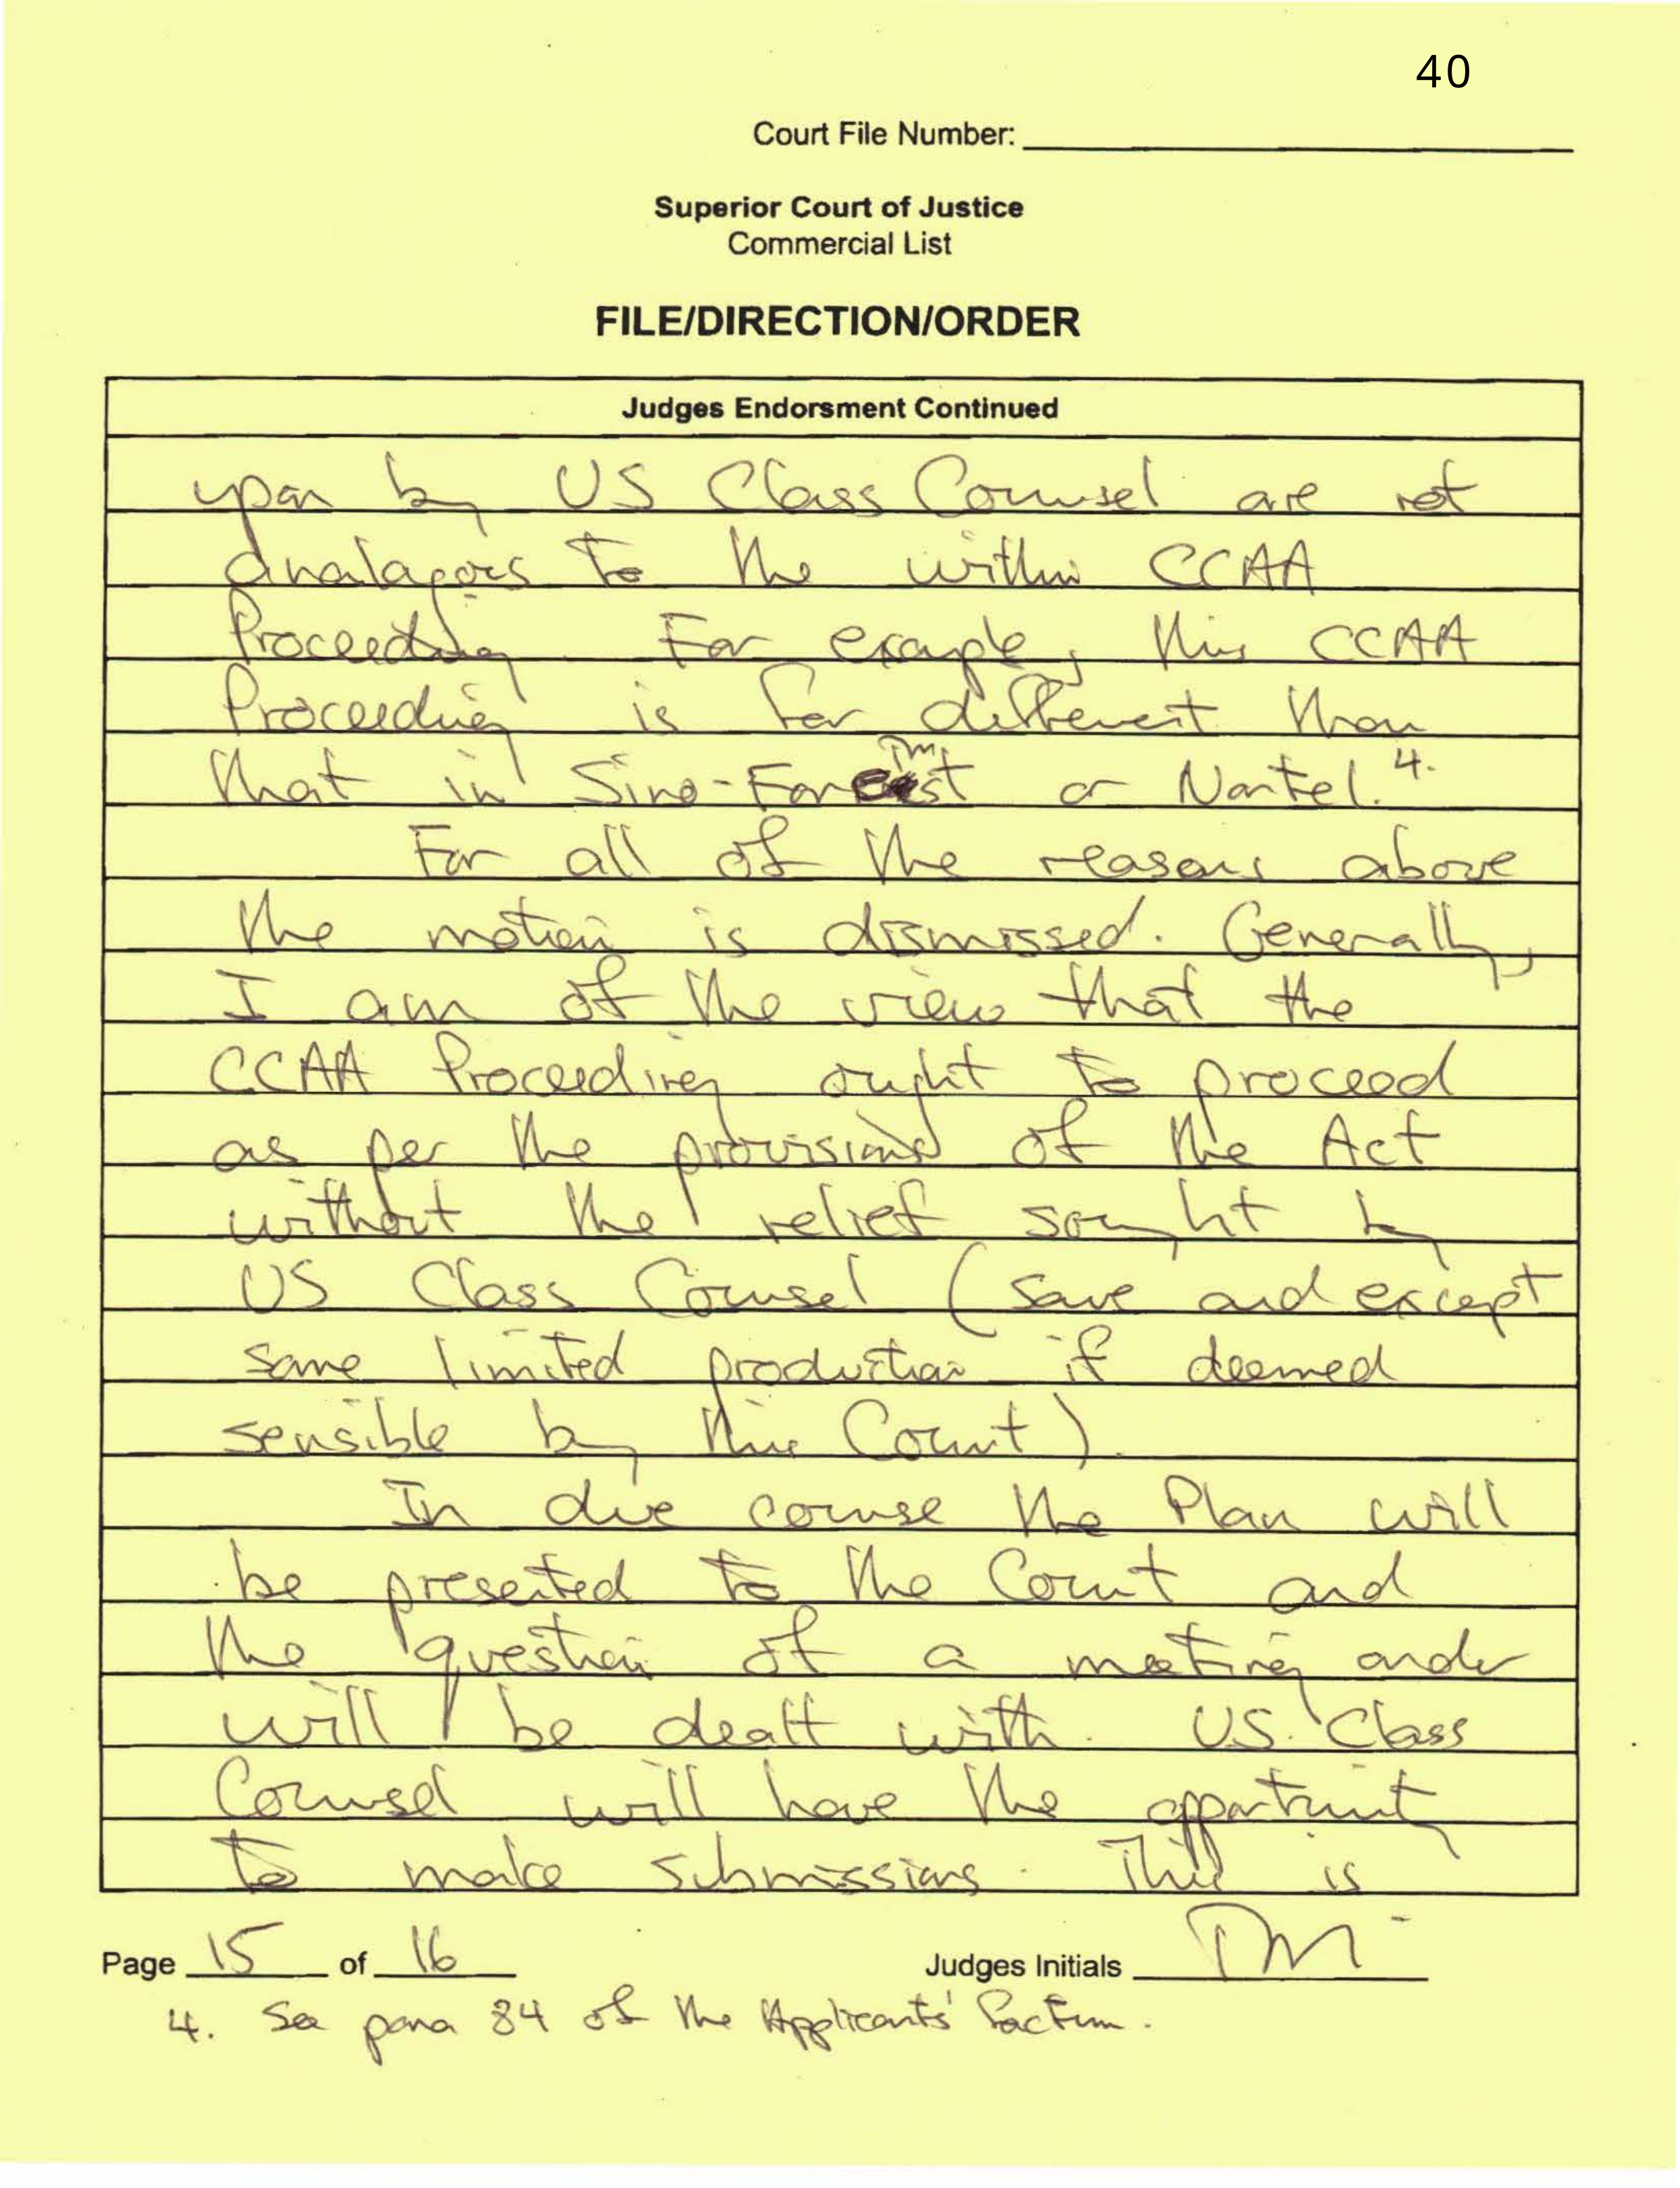 40
Court File Number:
Superior Court of Justice
Commercial List
FILE/DIRECTION/ORDER
Judges Endorsment Continued
upon by US Class Counsel are not
analagous to the within CCAA
Proceeding. For example, this CCAA
Proceeding is far different than
that in Sino-Forest or Nortel. 4.
For all of the reasons above
the motion is dismissed. Generally,
I am of the view that the
CCAA Proceeding ought to proceed
as per the provisions of the Act
without the relief sought by
US Class Counsel (save and except
some limited production if deemed
sensible by this Court).
In due course the Plan will
be presented to the Court and
the question of a meeting order
will be dealt with. US Class
Counsel will have the opportunity
to make submissions. This is
Page 15 of 16 Judges Initials TM
4. See para 84 of the Applicants' Factum.